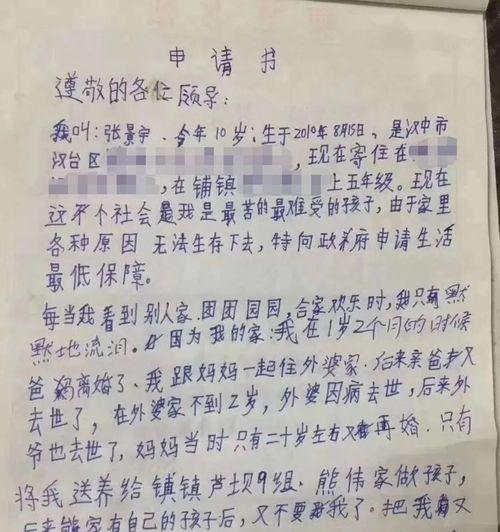 申请书
遵敬的各位顾导:
我叫:张景宇、今年10岁;生于2010年8月15日、是汉中市
汉台区,现在寄住在
,在铺镇上五年级。现在
这个社会是我是最苦的最难受的孩子,由于家里
各种原因 无法生存下去,特向政府申请生活
最低保障。
每当我看到别人家.团团园园,合家欢乐时,我只有默
默地流泪。因为我的家:我在1岁2个月的时候
爸妈离婚了、我跟妈妈一起住外婆家.后来亲爸又
去世了,在外婆家不到2岁,外婆因病去世,后来外
爷也去世了,妈妈当时只有二十岁左右又再婚.只有
将我送养给镇芦坝9组.熊伟家做孩子,
后来熊家有自己的孩子后,又不要我了。把我又